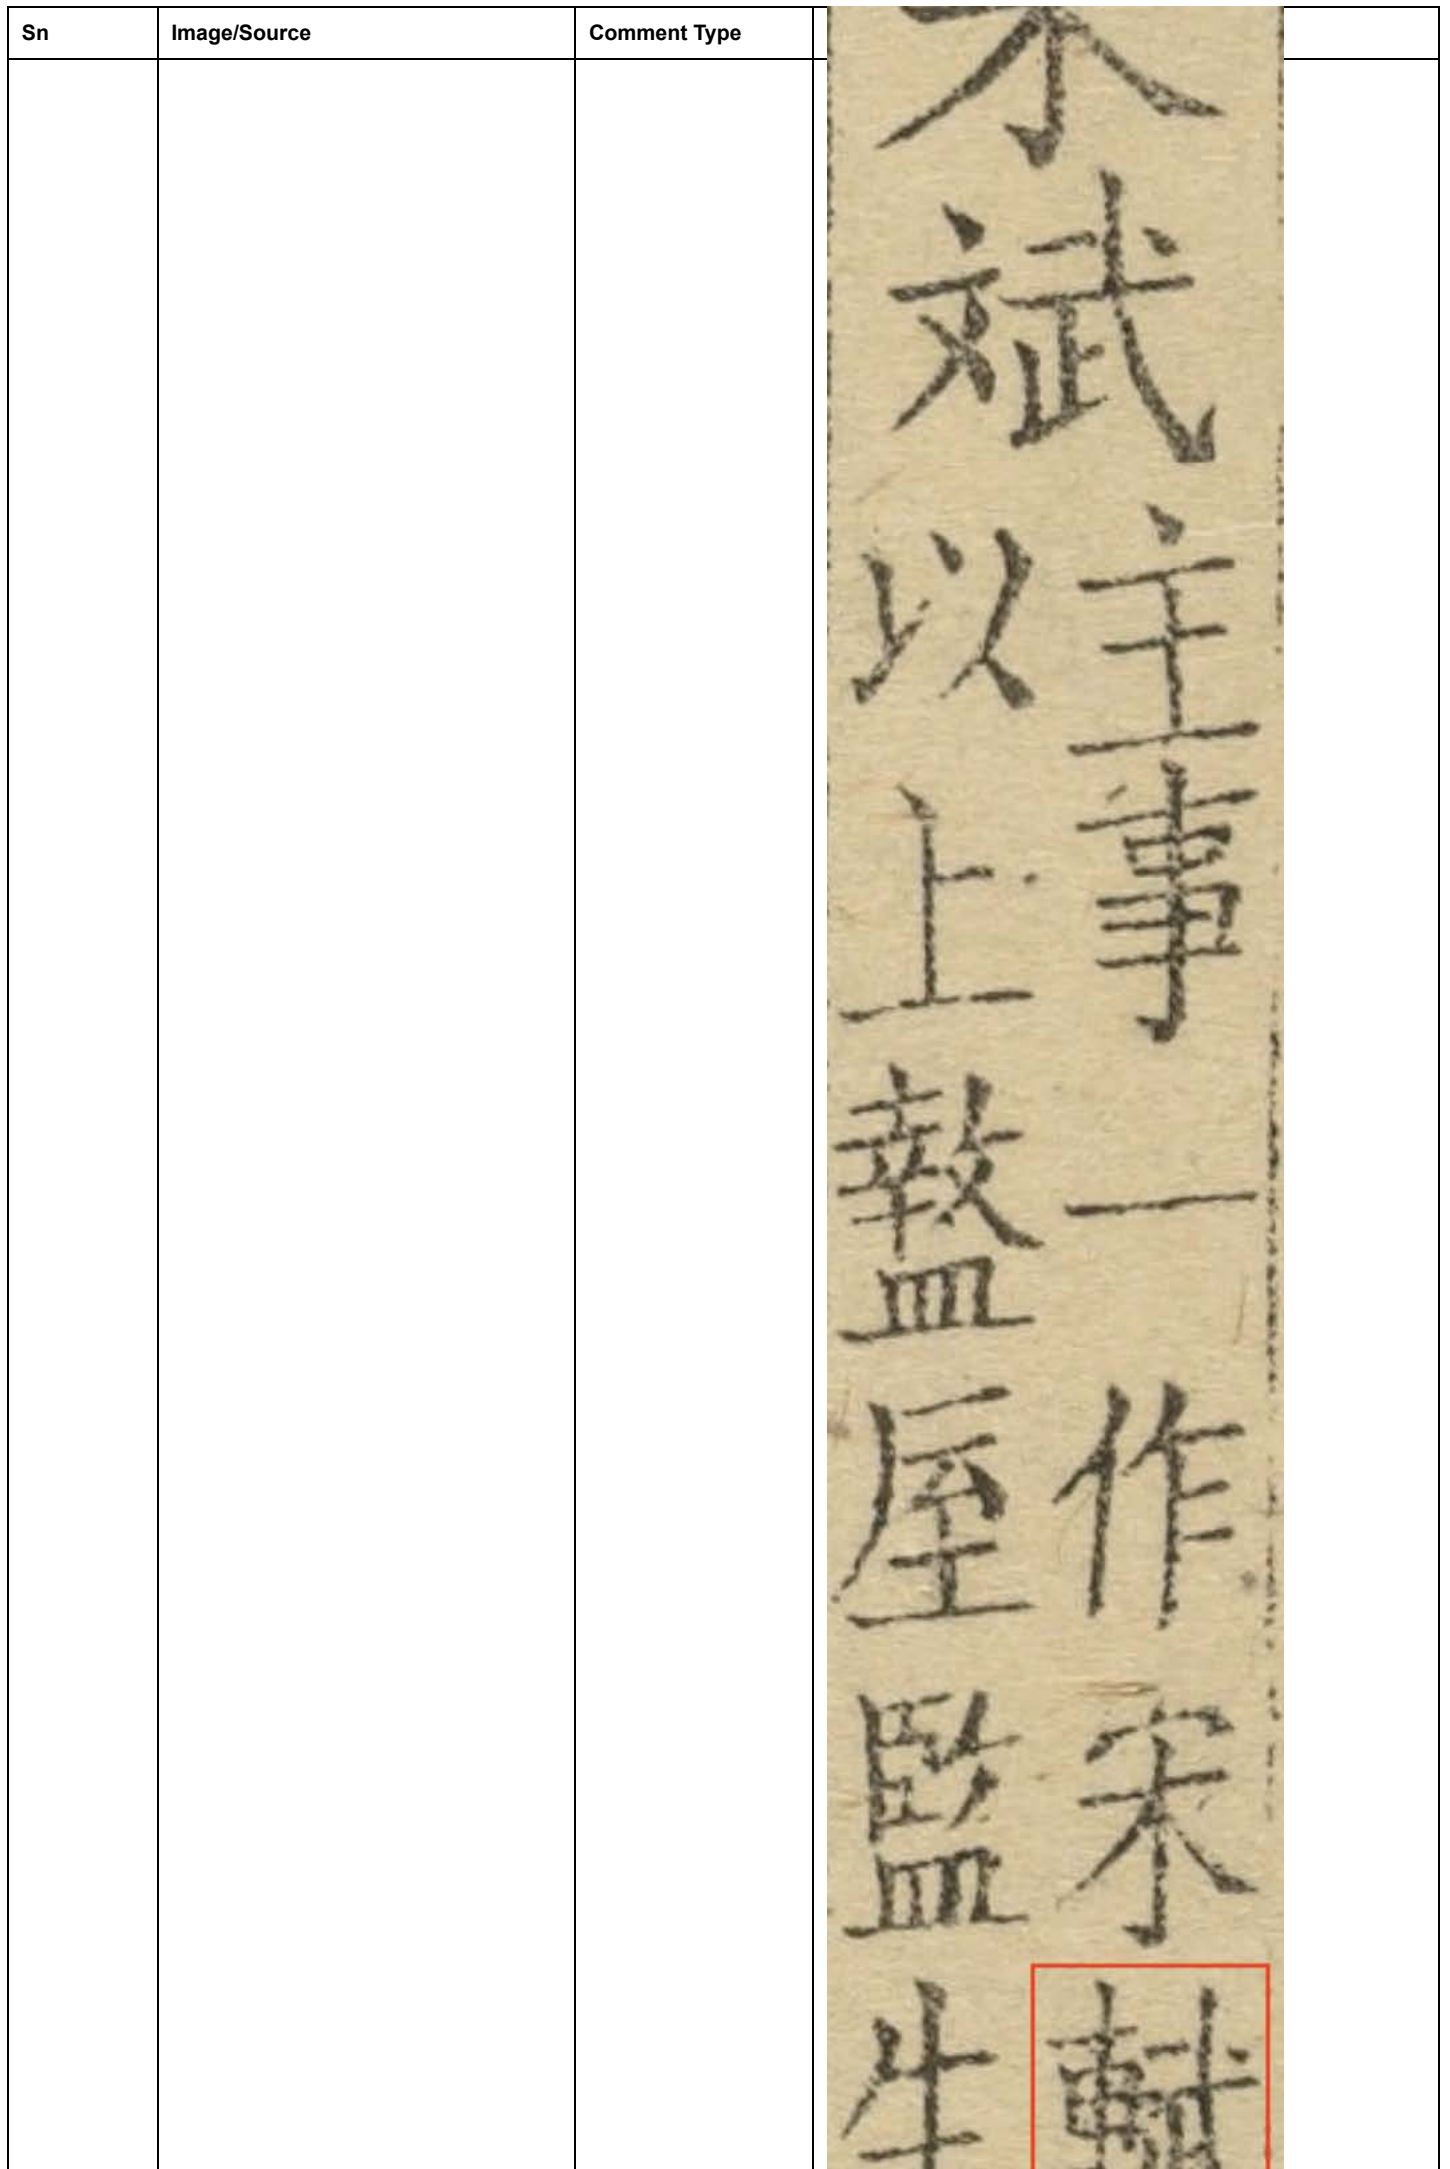 Sn Image/Source Comment Type
斌
主事一作宋
以上盩厔監生